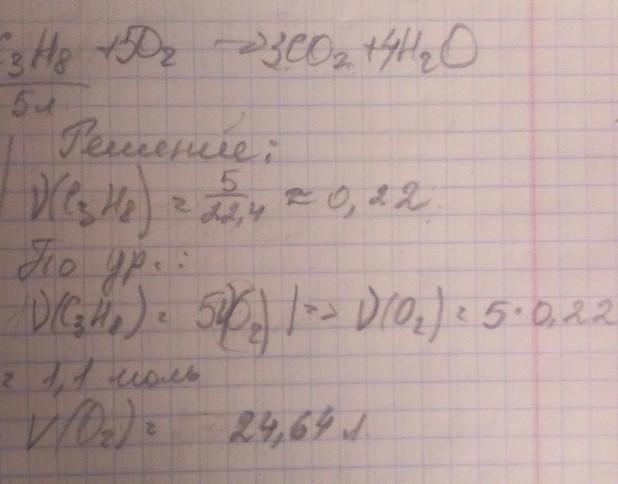 C₃H₈ + 5O₂ → 3CO₂ + 4H₂O
5л
Решение:
ν(C₃H₈) = 5/22,4 ≈ 0,22
По ур.:
ν(C₃H₈) = 5ν(O₂) | => ν(O₂) = 5·0,22
= 1,1 моль
V(O₂) = 24,64 л